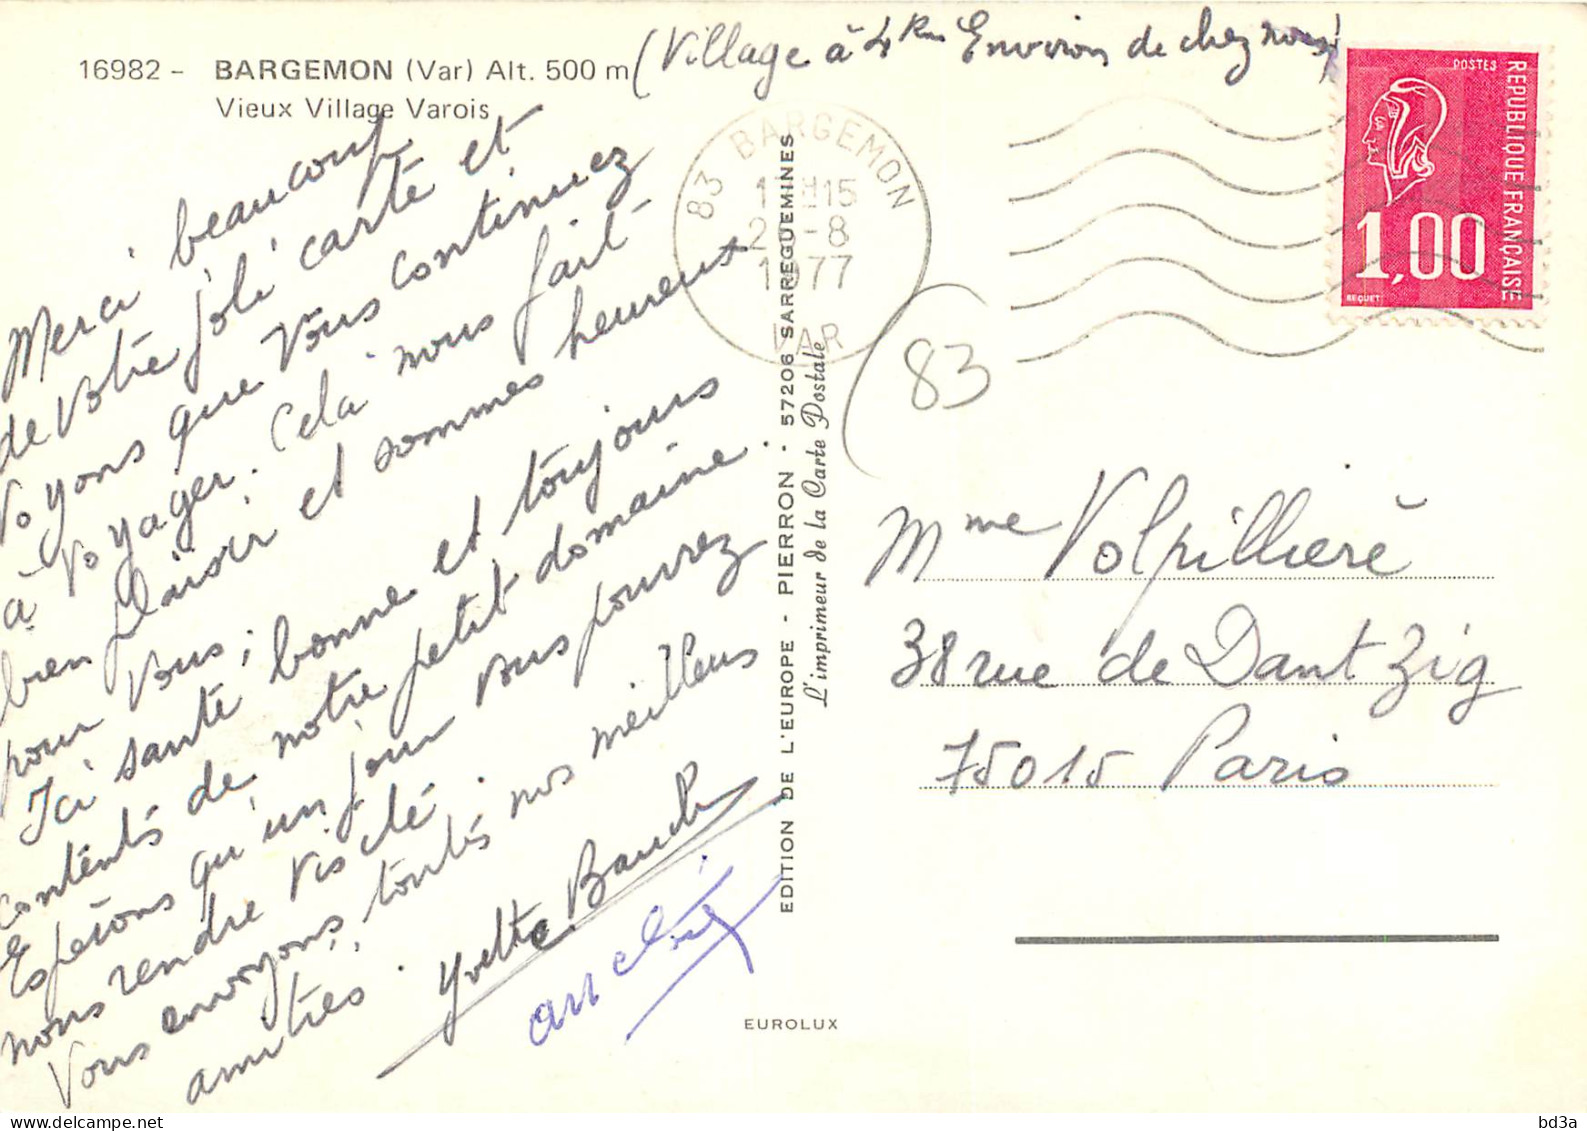 (Village à 4 km Environ de chez nous)
16982 - BARGEMON (Var) Alt. 500 m
Vieux Village Varois
Merci beaucoup
de votre joli carte et
voyons que vous continuez
à voyager. Cela nous fait
bien plaisir et sommes heureux
pour vous ; bonne et toujours
Ici santé
contents de notre petit domaine.
Espérons qu'un jour vous pourrez
nous rendre visite.
Vous envoyons, toutes nos meilleurs
amitiés. Yvette
83 BARGEMON
15
-8
1977
VAR
POSTES
REPUBLIQUE FRANÇAISE
1,00
BEQUET
83
EDITION DE L'EUROPE - PIERRON - 57206 SARREGUEMINES
L'imprimeur de la Carte Postale
Mme Volpillière
38 rue de Dantzig
75015 Paris
EUROLUX
bd3a